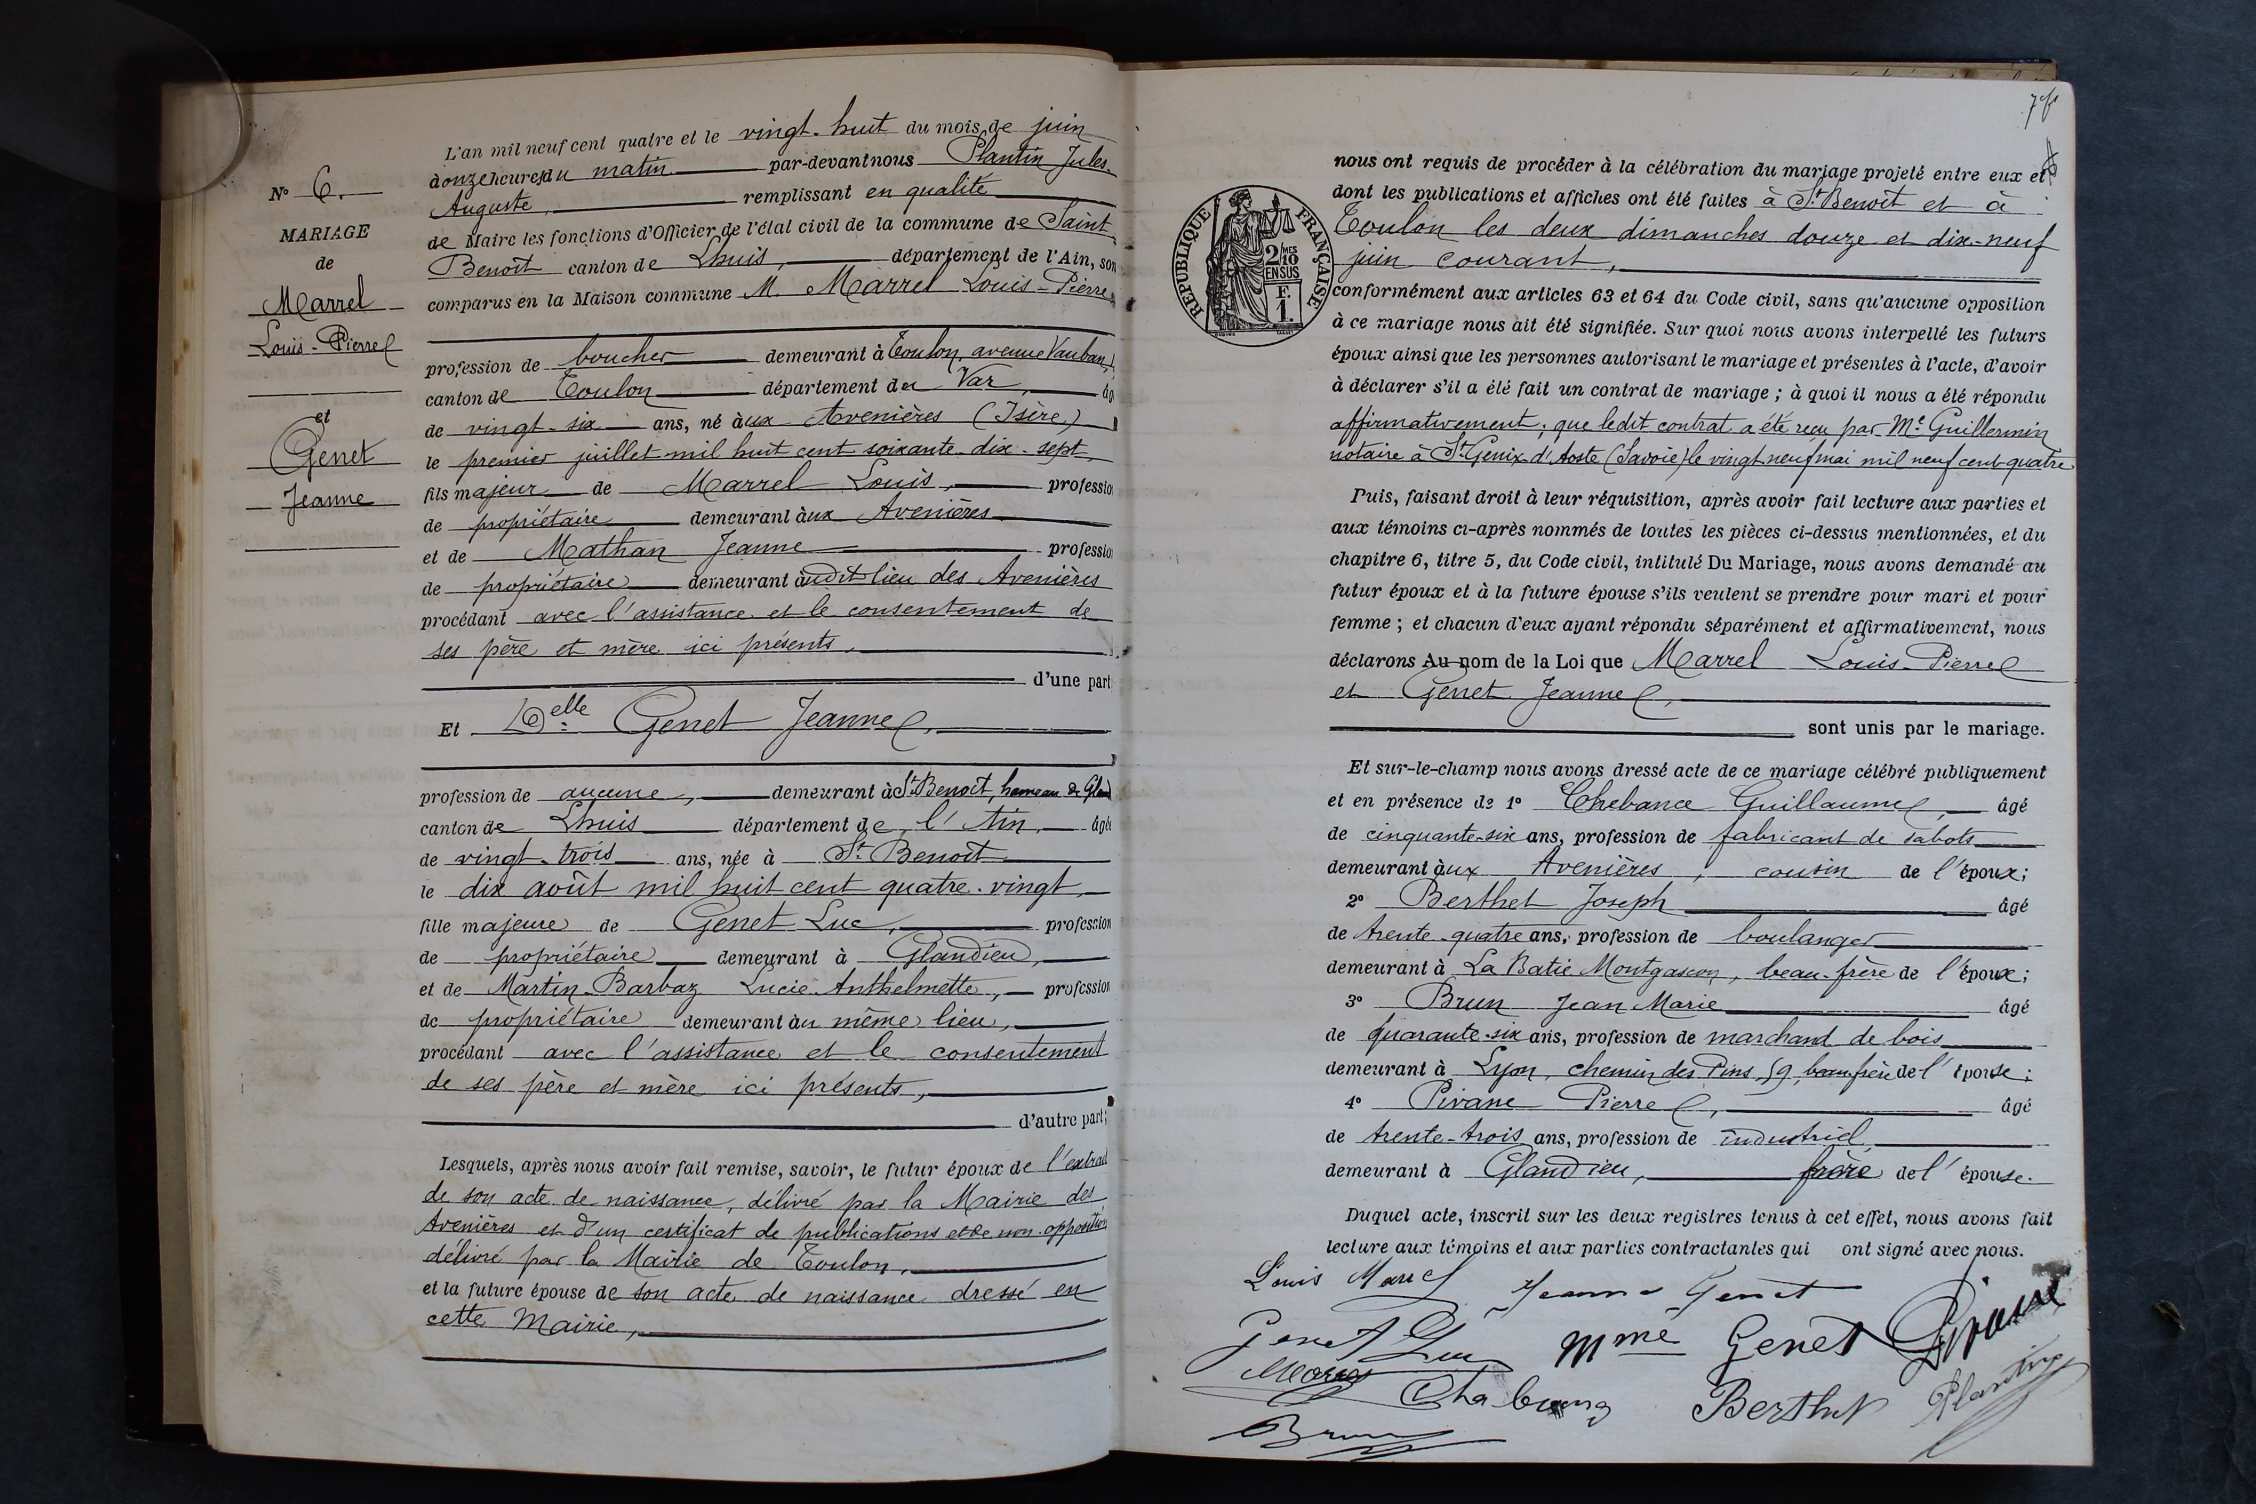 N° 6.
MARIAGE
de
Marrel
Louis-Pierre
et
Genet
Jeanne
L'an mil neuf cent quatre et le vingt-huit du mois de juin
à onze heures du matin par-devant nous Plantin Jules-
Auguste, remplissant en qualité
de Maire les fonctions d'Officier de l'état civil de la commune de Saint-
Benoît canton de Lhuis, département de l'Ain, son
comparus en la Maison commune M. Marrel Louis-Pierre,
profession de boucher demeurant à Toulon, avenue Vauban,
canton de Toulon département du Var
de vingt-six ans, né aux Avenières (Isère)
le premier juillet mil huit cent soixante-dix-sept,
fils majeur de Marrel Louis, profession
de propriétaire demeurant aux Avenières
et de Mathan Jeanne profession
de propriétaire demeurant audit lieu des Avenières
procédant avec l'assistance et le consentement de
ses père et mère ici présents,
d'une part
Et Delle Genet Jeanne,
profession de aucune, demeurant à St Benoît, hameau de Gland
canton de Lhuis département de l'Ain, âgée
de vingt-trois ans, née à St Benoît
le dix août mil huit cent quatre-vingt,
fille majeure de Genet Luc, profession
de propriétaire demeurant à Glandieu,
et de Martin-Barbaz Lucie-Anthelmette, profession
de propriétaire demeurant au même lieu,
procédant avec l'assistance et le consentement
de ses père et mère ici présents,
d'autre part;
Lesquels, après nous avoir fait remise, savoir, le futur époux de l'extrait
de son acte de naissance, délivré par la Mairie des
Avenières et d'un certificat de publications et de non-opposition
délivré par la Mairie de Toulon,
et la future épouse de son acte de naissance dressé en
cette Mairie,
RÉPUBLIQUE FRANÇAISE
2 MES
10
EN SUS
F.
1.
nous ont requis de procéder à la célébration du mariage projeté entre eux et
dont les publications et affiches ont été faites à St Benoît et à
Toulon les deux dimanches douze et dix-neuf
juin courant,
conformément aux articles 63 et 64 du Code civil, sans qu'aucune opposition
à ce mariage nous ait été signifiée. Sur quoi nous avons interpellé les futurs
époux ainsi que les personnes autorisant le mariage et présentes à l'acte, d'avoir
à déclarer s'il a été fait un contrat de mariage ; à quoi il nous a été répondu
affirmativement ; que ledit contrat a été reçu par Me Guillermin
notaire à St Genix d'Aoste (Savoie) le vingt neuf mai mil neuf cent quatre
Puis, faisant droit à leur réquisition, après avoir fait lecture aux parties et
aux témoins ci-après nommés de toutes les pièces ci-dessus mentionnées, et du
chapitre 6, titre 5, du Code civil, intitulé Du Mariage, nous avons demandé au
futur époux et à la future épouse s'ils veulent se prendre pour mari et pour
femme ; et chacun d'eux ayant répondu séparément et affirmativement, nous
déclarons Au nom de la Loi que Marrel Louis-Pierre
et Genet Jeanne,
sont unis par le mariage.
Et sur-le-champ nous avons dressé acte de ce mariage célébré publiquement
et en présence de 1° Chebance Guillaume, âgé
de cinquante-six ans, profession de fabricant de sabots
demeurant aux Avenières, cousin de l'époux;
2° Berthet Joseph âgé
de trente-quatre ans, profession de boulanger
demeurant à La Batie Montgascon, beau-frère de l'époux;
3° Brun Jean Marie âgé
de quarante-six ans, profession de marchand de bois
demeurant à Lyon, chemin des Pins, 59, beau frère de l'épouse;
4° Pivane Pierre, âgé
de trente-trois ans, profession de industriel
demeurant à Glandieu, frère de l'épouse.
Duquel acte, inscrit sur les deux registres tenus à cet effet, nous avons fait
lecture aux témoins et aux parties contractantes qui ont signé avec nous.
Louis Marrel Jeanne Genet
Genet Luc Mme Genet Pivane
Chabang Berthet Plantin
Brun